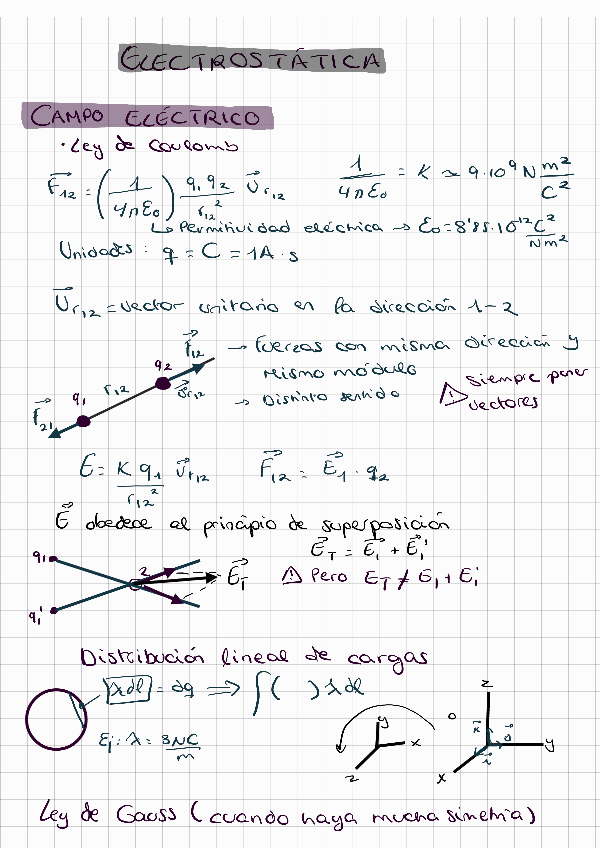 ELECTROSTÁTICA
CAMPO ELÉCTRICO
· Ley de Coulomb
F₁₂ = (1/4πε₀) q₁q₂/r₁₂² Ur₁₂
1/4πε₀ = K ≈ 9·10⁹ N m²/C²
↳ Permitividad eléctrica → ε₀ = 8'85·10⁻¹² C²/Nm²
Unidades : q = C = 1A · s
Ur₁₂ = vector unitario en la dirección 1-2
→ Fuerzas con misma dirección y
mismo módulo
→ Distinto sentido
⚠ Siempre poner
vectores
F₁₂
q₂
r₁₂
Ur₁₂
q₁
F₂₁
E = K q₁/r₁₂² Ur₁₂ F₁₂ = E₁ · q₂
E obedece al principio de superposición
E_T = E₁ + E₁'
⚠ Pero E_T ≠ E₁ + E₁'
q₁
2
E_T
q₁'
Distribución lineal de cargas
λdl = dq ⟹ ∫( )λdl
Ej: λ = 3NC/m
y
x
z
o
z
y
x
k
j
i
Ley de Gauss (cuando haya mucha simetría)